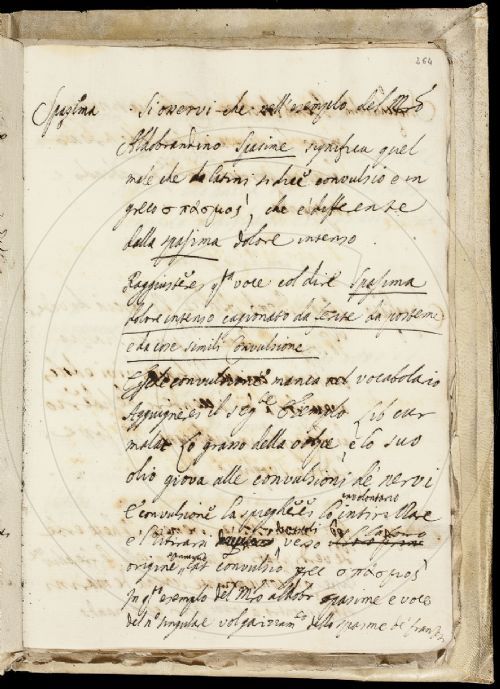 264
Spasima Si osservi che nell'esemplo del Mro
Aldobrandino Spasime significa quel
male che da latini si dice convulsio e in
greco σπάσμος, che è differente
dalla spasima dolore intenso.
Raggiustere qta voce col dire Spasima
dolore intenso cagionato da ferite da posteme
e da cose simili Convulsione
convulsione manca nel vocabolario
Aggiugnerei il segte Esemplo Lib cur
malat Lo grano della volpe, e lo suo
olio giova alle convulsioni de' nervi
E convulsione la spiegherei lo involontario
e ritirarsi verso
origine Lat convulsio grec σπάσμος
In qto esemplo del Mro aldobr spasime e voce
del no singulare volgarizzamto dello spasme de' franzesi